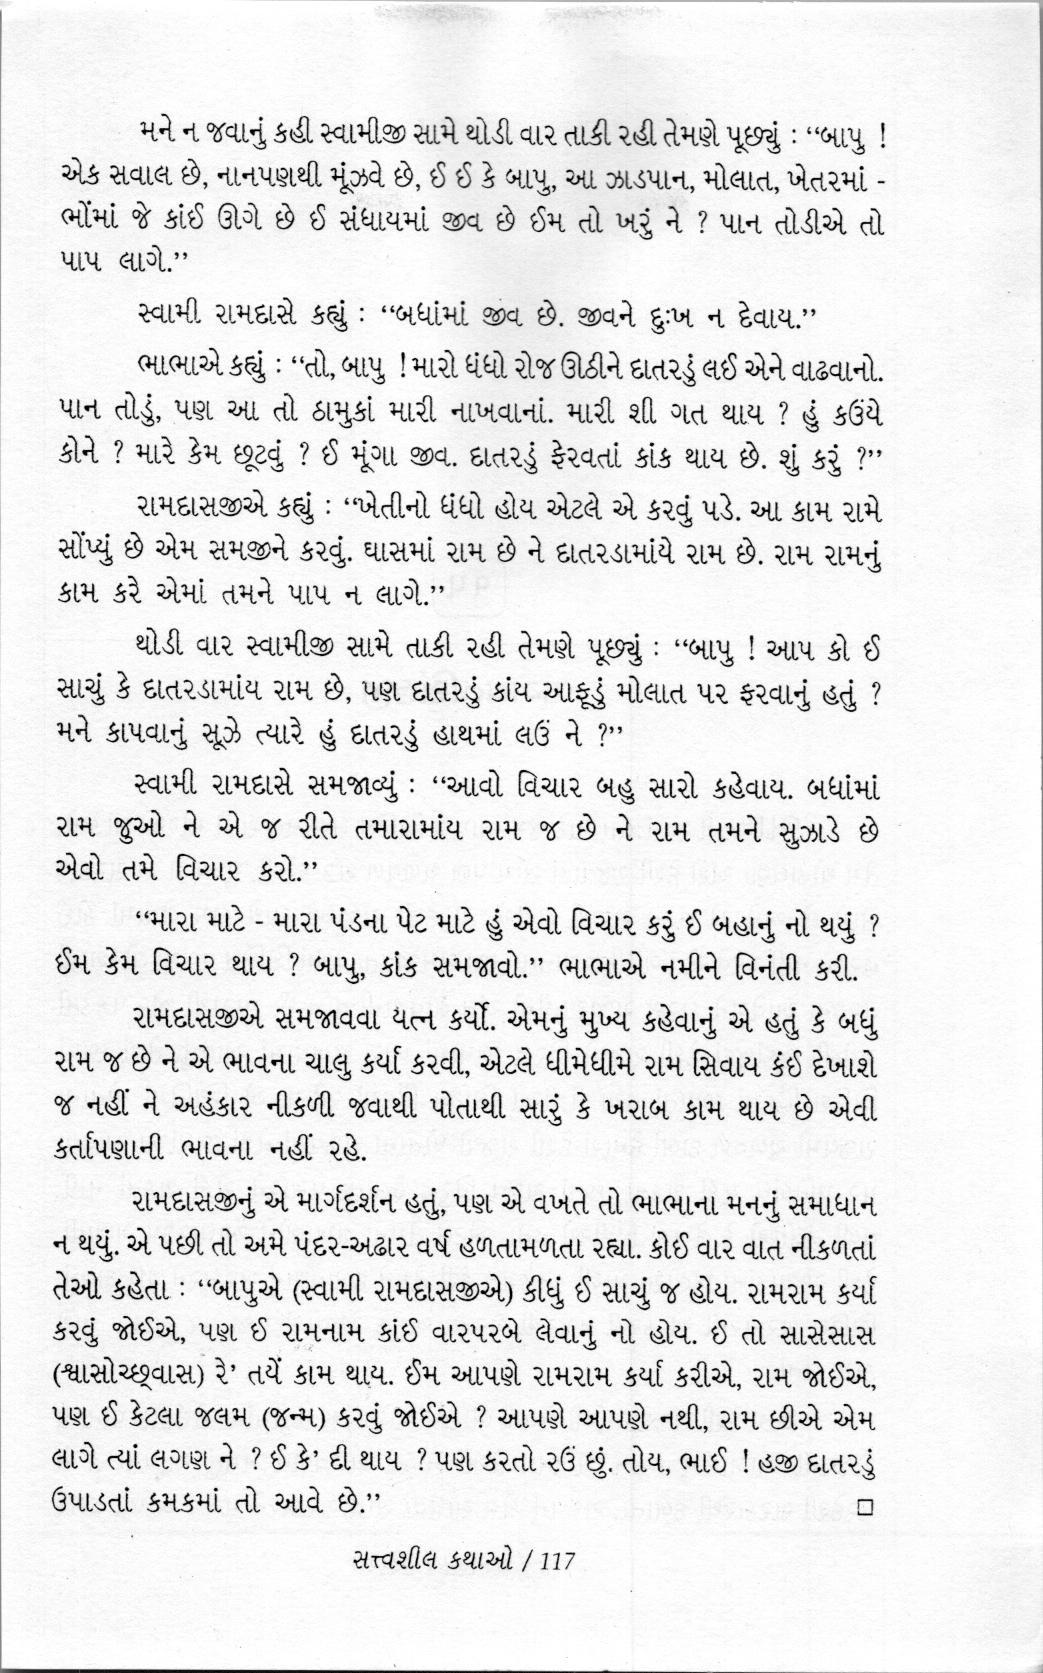 મને ન જવાનું કહી સ્વામીજી સામે થોડી વાર તાકી રહી તેમણે પૂછ્યું : ‘‘બાપુ !
એક સવાલ છે, નાનપણથી મૂંઝવે છે, ઈ ઈ કે બાપુ, આ ઝાડપાન, મોલાત, ખેતરમાં -
ભોંમાં જે કાંઈ ઊગે છે ઈ સંધાયમાં જીવ છે ઈમ તો ખરું ને ? પાન તોડીએ તો
પાપ લાગે.’’
સ્વામી રામદાસે કહ્યું : ‘‘બધાંમાં જીવ છે. જીવને દુઃખ ન દેવાય.’’
ભાભાએ કહ્યું : ‘‘તો, બાપુ ! મારો ધંધો રોજ ઊઠીને દાતરડું લઈ એને વાઢવાનો.
પાન તોડું, પણ આ તો ઠામુકાં મારી નાખવાનાં. મારી શી ગત થાય ? હું કઉંયે
કોને ? મારે કેમ છૂટવું ? ઈ મૂંગા જીવ. દાતરડું ફેરવતાં કાંક થાય છે. શું કરું ?’’
રામદાસજીએ કહ્યું : ‘‘ખેતીનો ધંધો હોય એટલે એ કરવું પડે. આ કામ રામે
સોંપ્યું છે એમ સમજીને કરવું. ઘાસમાં રામ છે ને દાતરડામાંયે રામ છે. રામ રામનું
કામ કરે એમાં તમને પાપ ન લાગે.’’
થોડી વાર સ્વામીજી સામે તાકી રહી તેમણે પૂછ્યું : ‘‘બાપુ ! આપ કો ઈ
સાચું કે દાતરડામાંય રામ છે, પણ દાતરડું કાંય આફૂડું મોલાત પર ફરવાનું હતું ?
મને કાપવાનું સૂઝે ત્યારે હું દાતરડું હાથમાં લઉં ને ?’’
સ્વામી રામદાસે સમજાવ્યું : ‘‘આવો વિચાર બહુ સારો કહેવાય. બધાંમાં
રામ જુઓ ને એ જ રીતે તમારામાંય રામ જ છે ને રામ તમને સુઝાડે છે
એવો તમે વિચાર કરો.’’
‘‘મારા માટે - મારા પંડના પેટ માટે હું એવો વિચાર કરું ઈ બહાનું નો થયું ?
ઈમ કેમ વિચાર થાય ? બાપુ, કાંક સમજાવો.’’ ભાભાએ નમીને વિનંતી કરી.
રામદાસજીએ સમજાવવા યત્ન કર્યો. એમનું મુખ્ય કહેવાનું એ હતું કે બધું
રામ જ છે ને એ ભાવના ચાલુ કર્યા કરવી, એટલે ધીમેધીમે રામ સિવાય કંઈ દેખાશે
જ નહીં ને અહંકાર નીકળી જવાથી પોતાથી સારું કે ખરાબ કામ થાય છે એવી
કર્તાપણાની ભાવના નહીં રહે.
રામદાસજીનું એ માર્ગદર્શન હતું, પણ એ વખતે તો ભાભાના મનનું સમાધાન
ન થયું. એ પછી તો અમે પંદર-અઢાર વર્ષ હળતામળતા રહ્યા. કોઈ વાર વાત નીકળતાં
તેઓ કહેતા : ‘‘બાપુએ (સ્વામી રામદાસજીએ) કીધું ઈ સાચું જ હોય. રામરામ કર્યા
કરવું જોઈએ, પણ ઈ રામનામ કાંઈ વારપરબે લેવાનું નો હોય. ઈ તો સાસેસાસ
(શ્વાસોચ્છ્વાસ) રે’ તયેં કામ થાય. ઈમ આપણે રામરામ કર્યા કરીએ, રામ જોઈએ,
પણ ઈ કેટલા જલમ (જન્મ) કરવું જોઈએ ? આપણે આપણે નથી, રામ છીએ એમ
લાગે ત્યાં લગણ ને ? ઈ કે’ દી થાય ? પણ કરતો રઉં છું. તોય, ભાઈ ! હજી દાતરડું
ઉપાડતાં કમકમાં તો આવે છે.’’ □
સત્ત્વશીલ કથાઓ / 117